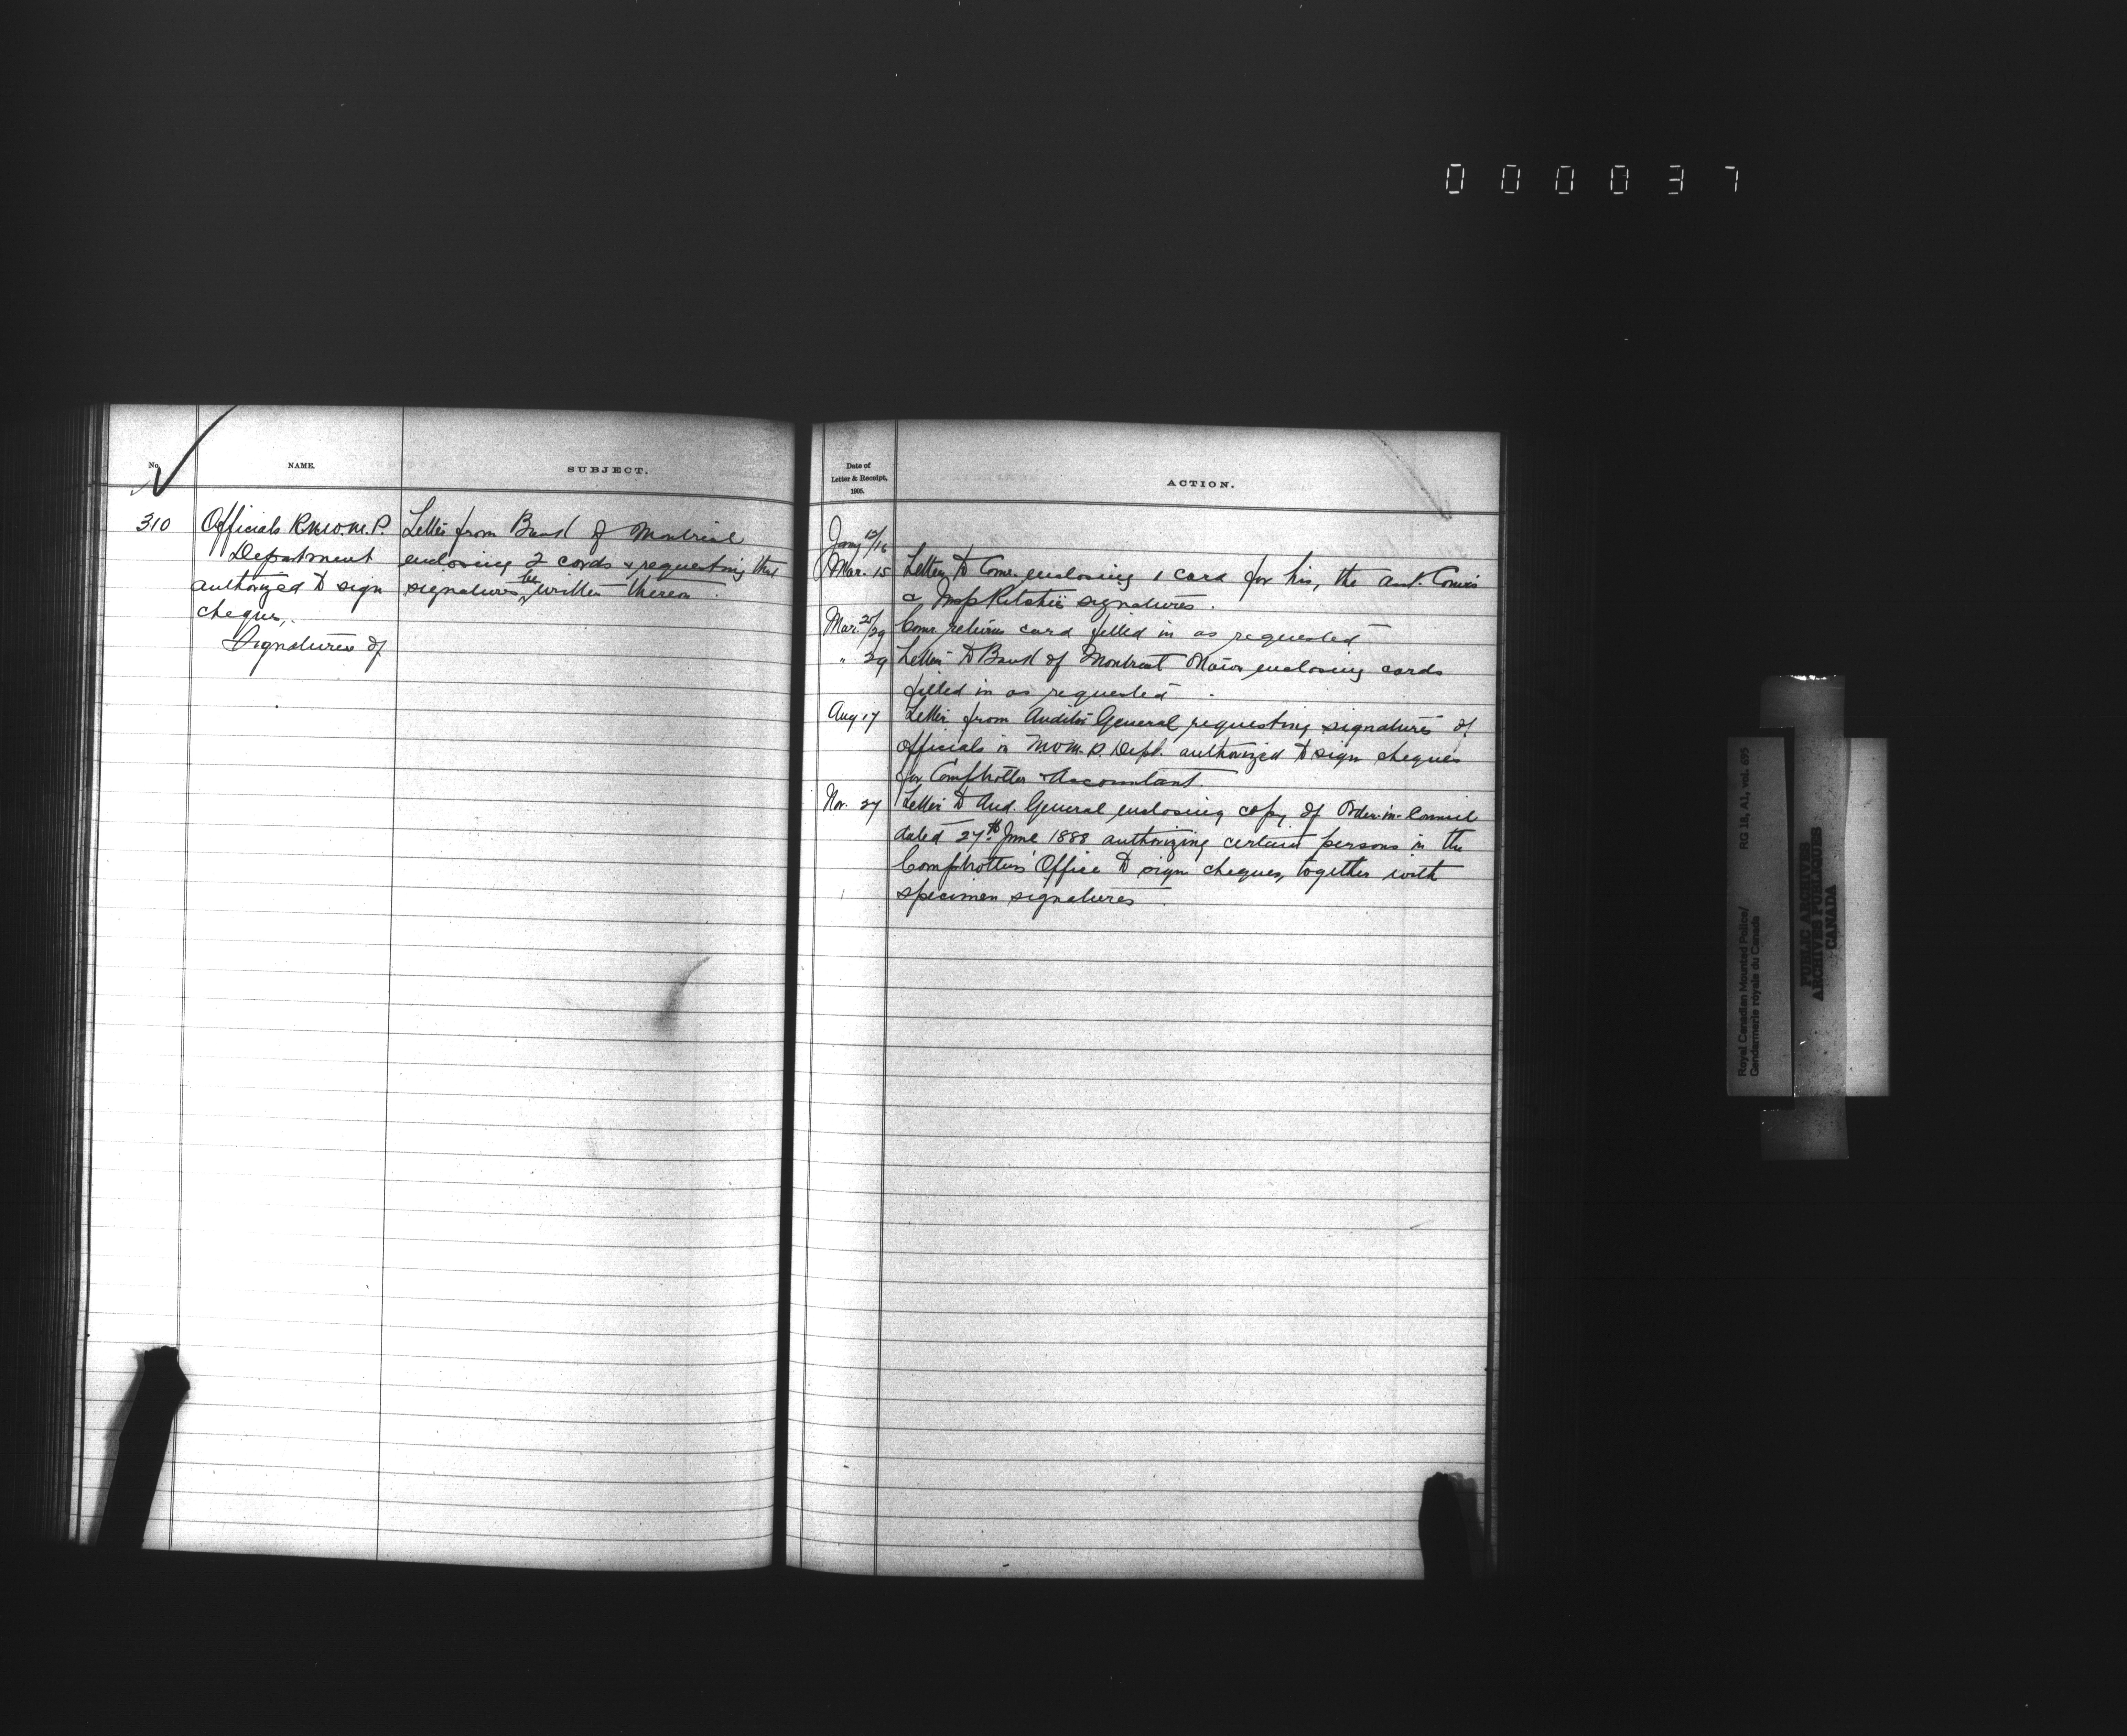 000037
No.
NAME.
SUBJECT.
310
Officials R.N.W.M.P.
Department
authorized to sign
cheques,
Signatures of
Letter from Bank of Montreal
enclosing 2 cards & requesting that
signatures be written thereon.
Date of
Letter & Receipt,
1905.
ACTION.
Jany 12/16
Mar. 15 Letter to Comr. enclosing 1 card for his, the Asst. Comr's
& Insp Ritchie signatures.
Mar. 25/29 Comr. returns card filled in as requested
" 29 Letter to Bank of Montreal enclosing cards
filled in as requested.
Aug 17 Letter from Auditor General requesting signatures of
officials in N.W.M.P. Dept. authorized to sign cheques
for Comptroller & Accountant.
Nov. 27 Letter to Aud. General enclosing copy of Order-in-Council
dated 27th June 1888 authorizing certain persons in the
Comptroller's Office to sign cheques, together with
specimen signatures.
Royal Canadian Mounted Police/
Gendarmerie royale du Canada
RG 18, A1, vol. 695
PUBLIC ARCHIVES
ARCHIVES PUBLIQUES
CANADA